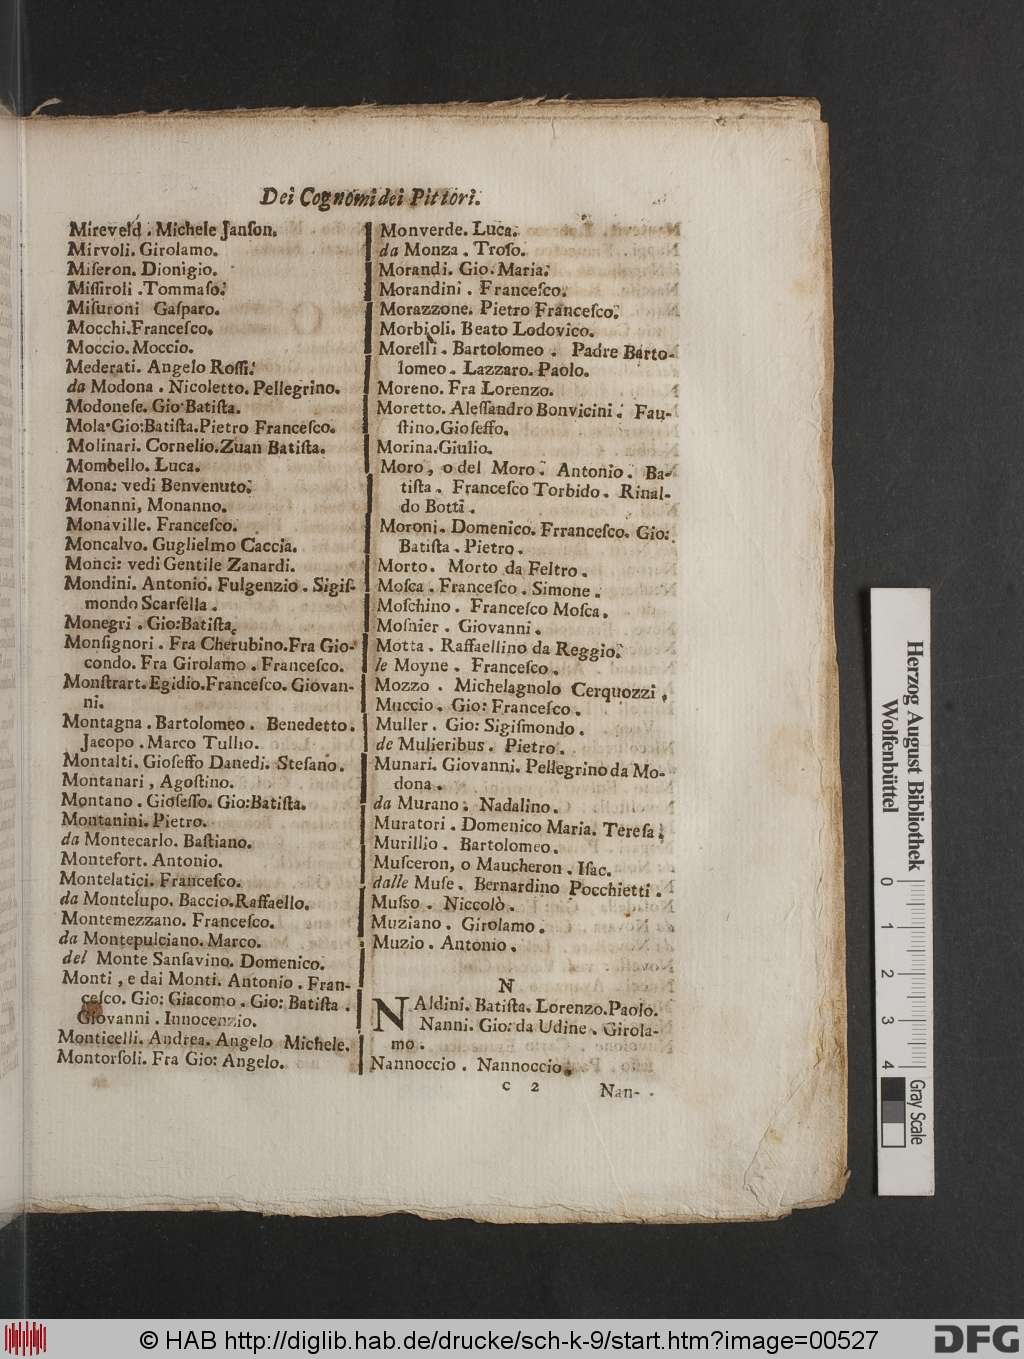 Dei Cognomi dei Pittori.
Mireveld . Michele Janſon.
Mirvoli. Girolamo.
Miſeron. Dionigio.
Miſſiroli .Tommaſo.
Miſuroni Gaſparo.
Mocchi.Franceſco.
Moccio. Moccio.
Mederati. Angelo Roſſi.
da Modona . Nicoletto. Pellegrino.
Modoneſe. Gio Batiſta.
Mola Gio:Batiſta.Pietro Franceſco.
Molinari. Cornelio.Zuan Batiſta.
Mombello. Luca.
Mona: vedi Benvenuto.
Monanni, Monanno.
Monaville. Franceſco.
Moncalvo. Guglielmo Caccia.
Monci: vedi Gentile Zanardi.
Mondini. Antonio. Fulgenzio . Sigiſ-
mondo Scarſella .
Monegri . Gio:Batiſta.
Monſignori . Fra Cherubino.Fra Gio-
condo. Fra Girolamo . Franceſco.
Monſtrart. Egidio.Franceſco. Giovan-
ni.
Montagna . Bartolomeo . Benedetto.
Jacopo . Marco Tullio.
Montalti. Gioſeffo Danedi. Steſano.
Montanari , Agoſtino.
Montano . Gioſeffo. Gio:Batiſta.
Montanini. Pietro.
da Montecarlo. Baſtiano.
Montefort. Antonio.
Montelatici. Franceſco.
da Monteſupo. Baccio.Raffaello.
Montemezzano. Franceſco.
da Montepulciano. Marco.
del Monte Sanſavino. Domenico.
Monti , e dai Monti. Antonio . Fran-
ceſco. Gio: Giacomo . Gio: Batiſta .
Giovanni . Innocenzio.
Monticelli. Andrea. Angelo Michele.
Montorſoli. Fra Gio: Angelo.
Monverde. Luca.
da Monza . Troſo.
Morandi. Gio. Maria.
Morandini . Franceſco.
Morazzone. Pietro Franceſco.
Morbioli. Beato Lodovico.
Morelli . Bartolomeo . Padre Barto-
lomeo . Lazzaro. Paolo.
Moreno. Fra Lorenzo.
Moretto. Aleſſandro Bonvicini . Fau-
ſtino.Gioſeffo.
Morina.Giulio.
Moro , o del Moro . Antonio . Ba-
tiſta . Franceſco Torbido . Rinal-
do Botti .
Moroni. Domenico. Frranceſco. Gio:
Batiſta . Pietro .
Morto. Morto da Feltro .
Moſca . Franceſco . Simone .
Moſchino . Franceſco Moſca .
Moſnier . Giovanni .
Motta . Raffaellino da Reggio.
le Moyne . Franceſco .
Mozzo . Michelagnolo Cerquozzi ,
Muccio . Gio: Franceſco .
Muller . Gio: Sigiſmondo .
de Mulieribus . Pietro .
Munari. Giovanni. Pellegrino da Mo-
dona .
da Murano . Nadalino .
Muratori . Domenico Maria. Tereſa.
Murillio . Bartolomeo .
Muſceron, o Maucheron . Iſac.
dalle Muſe . Bernardino Pocchietti .
Muſſo . Niccolò .
Muziano . Girolamo .
Muzio . Antonio .
N
NAldini. Batiſta. Lorenzo.Paolo.
Nanni. Gio: da Udine . Girola-
mo .
Nannoccio . Nannoccio.
c 2
Nan-
Herzog August Bibliothek
Wolfenbüttel
0 1 2 3 4
Gray Scale
© HAB http://diglib.hab.de/drucke/sch-k-9/start.htm?image=00527
DFG